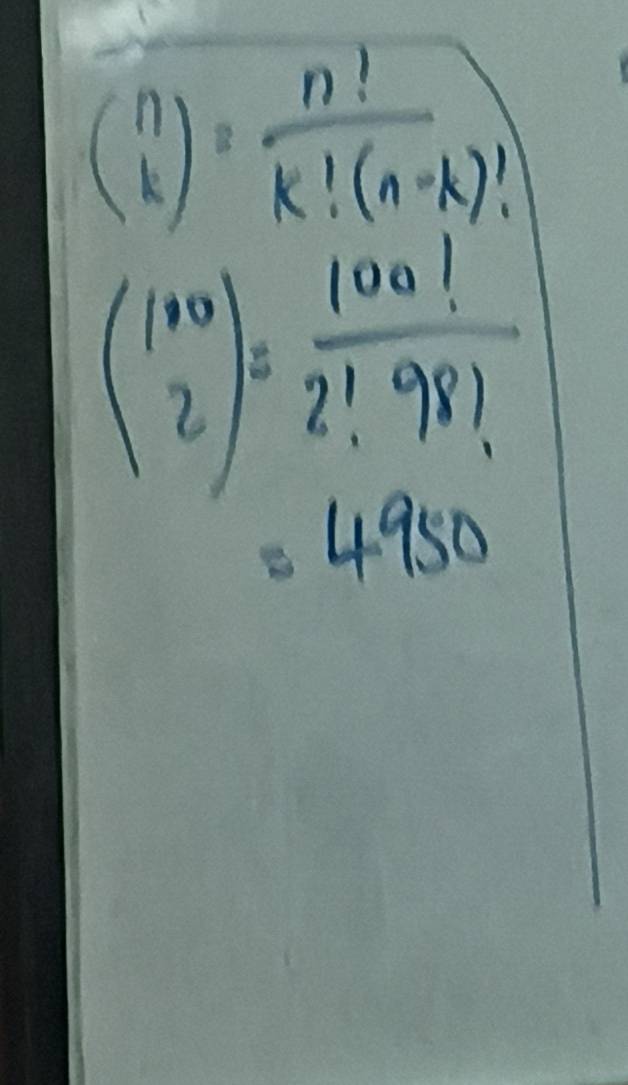 (n k) = n! / k!(n-k)!
(100 2) = 100! / 2! 98!
= 4950